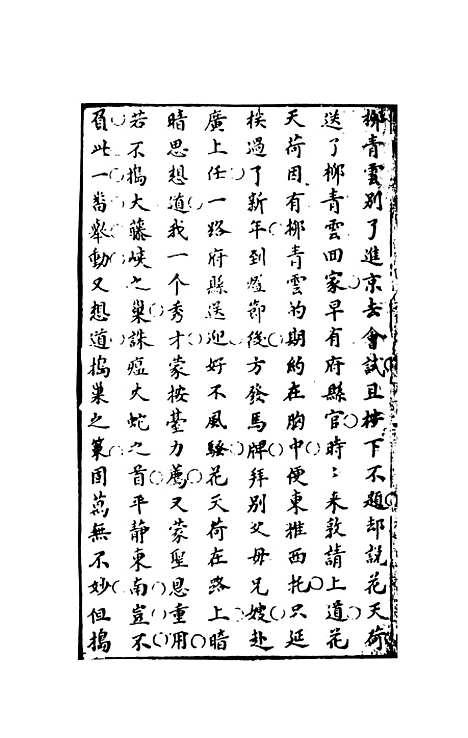 柳青雲別了進京去會試且按下不題却說花天荷
送了柳青雲回家早有府縣官時〻來敦請上道花
天荷因有柳青雲的期約在胸中便東推西托只延
挨過了新年到燈節後方發馬牌拜别父母兄嫂赴
廣上任一路府縣送迎好不風騷花天荷在路上暗
暗思想道我一个秀才蒙按臺力薦又蒙聖恩重用
若不搗大藤峽之巢誅瘟火蛇之首平靜東南豈不
負此一畨舉動又想道搗巢之策固萬無不妙但搗